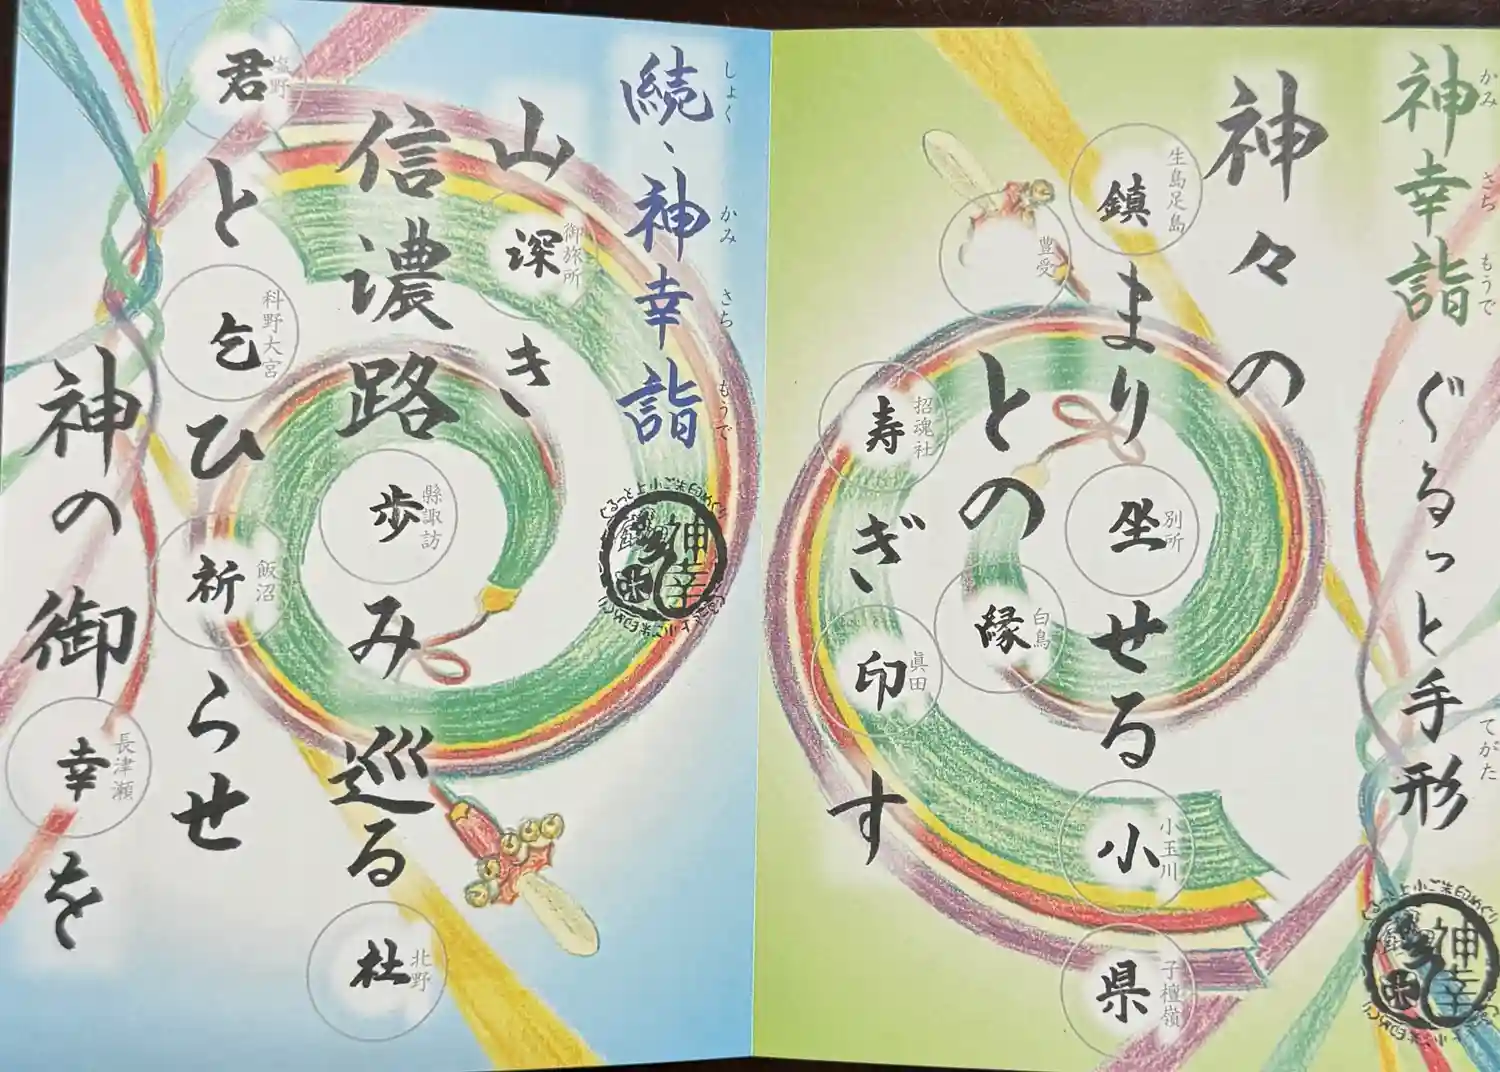 神幸詣 ぐるっと手形
かみ さち もうで
てがた
神々の
鎮まり坐せる小県
生島足島
別所
小玉川
子檀嶺
との縁
豊受
白鳥
寿ぎ印す
招魂社
眞田
ぐるっと上小ご朱印めぐり
神幸
続、神幸詣
しょく かみ さち もうで
山深き
御旅所
信濃路歩み巡る杜
縣諏訪
北野
君と乞ひ祈らせ
塩野
科野大宮
飯沼
神の御幸を
長津瀬
ぐるっと上小ご朱印めぐり
神幸